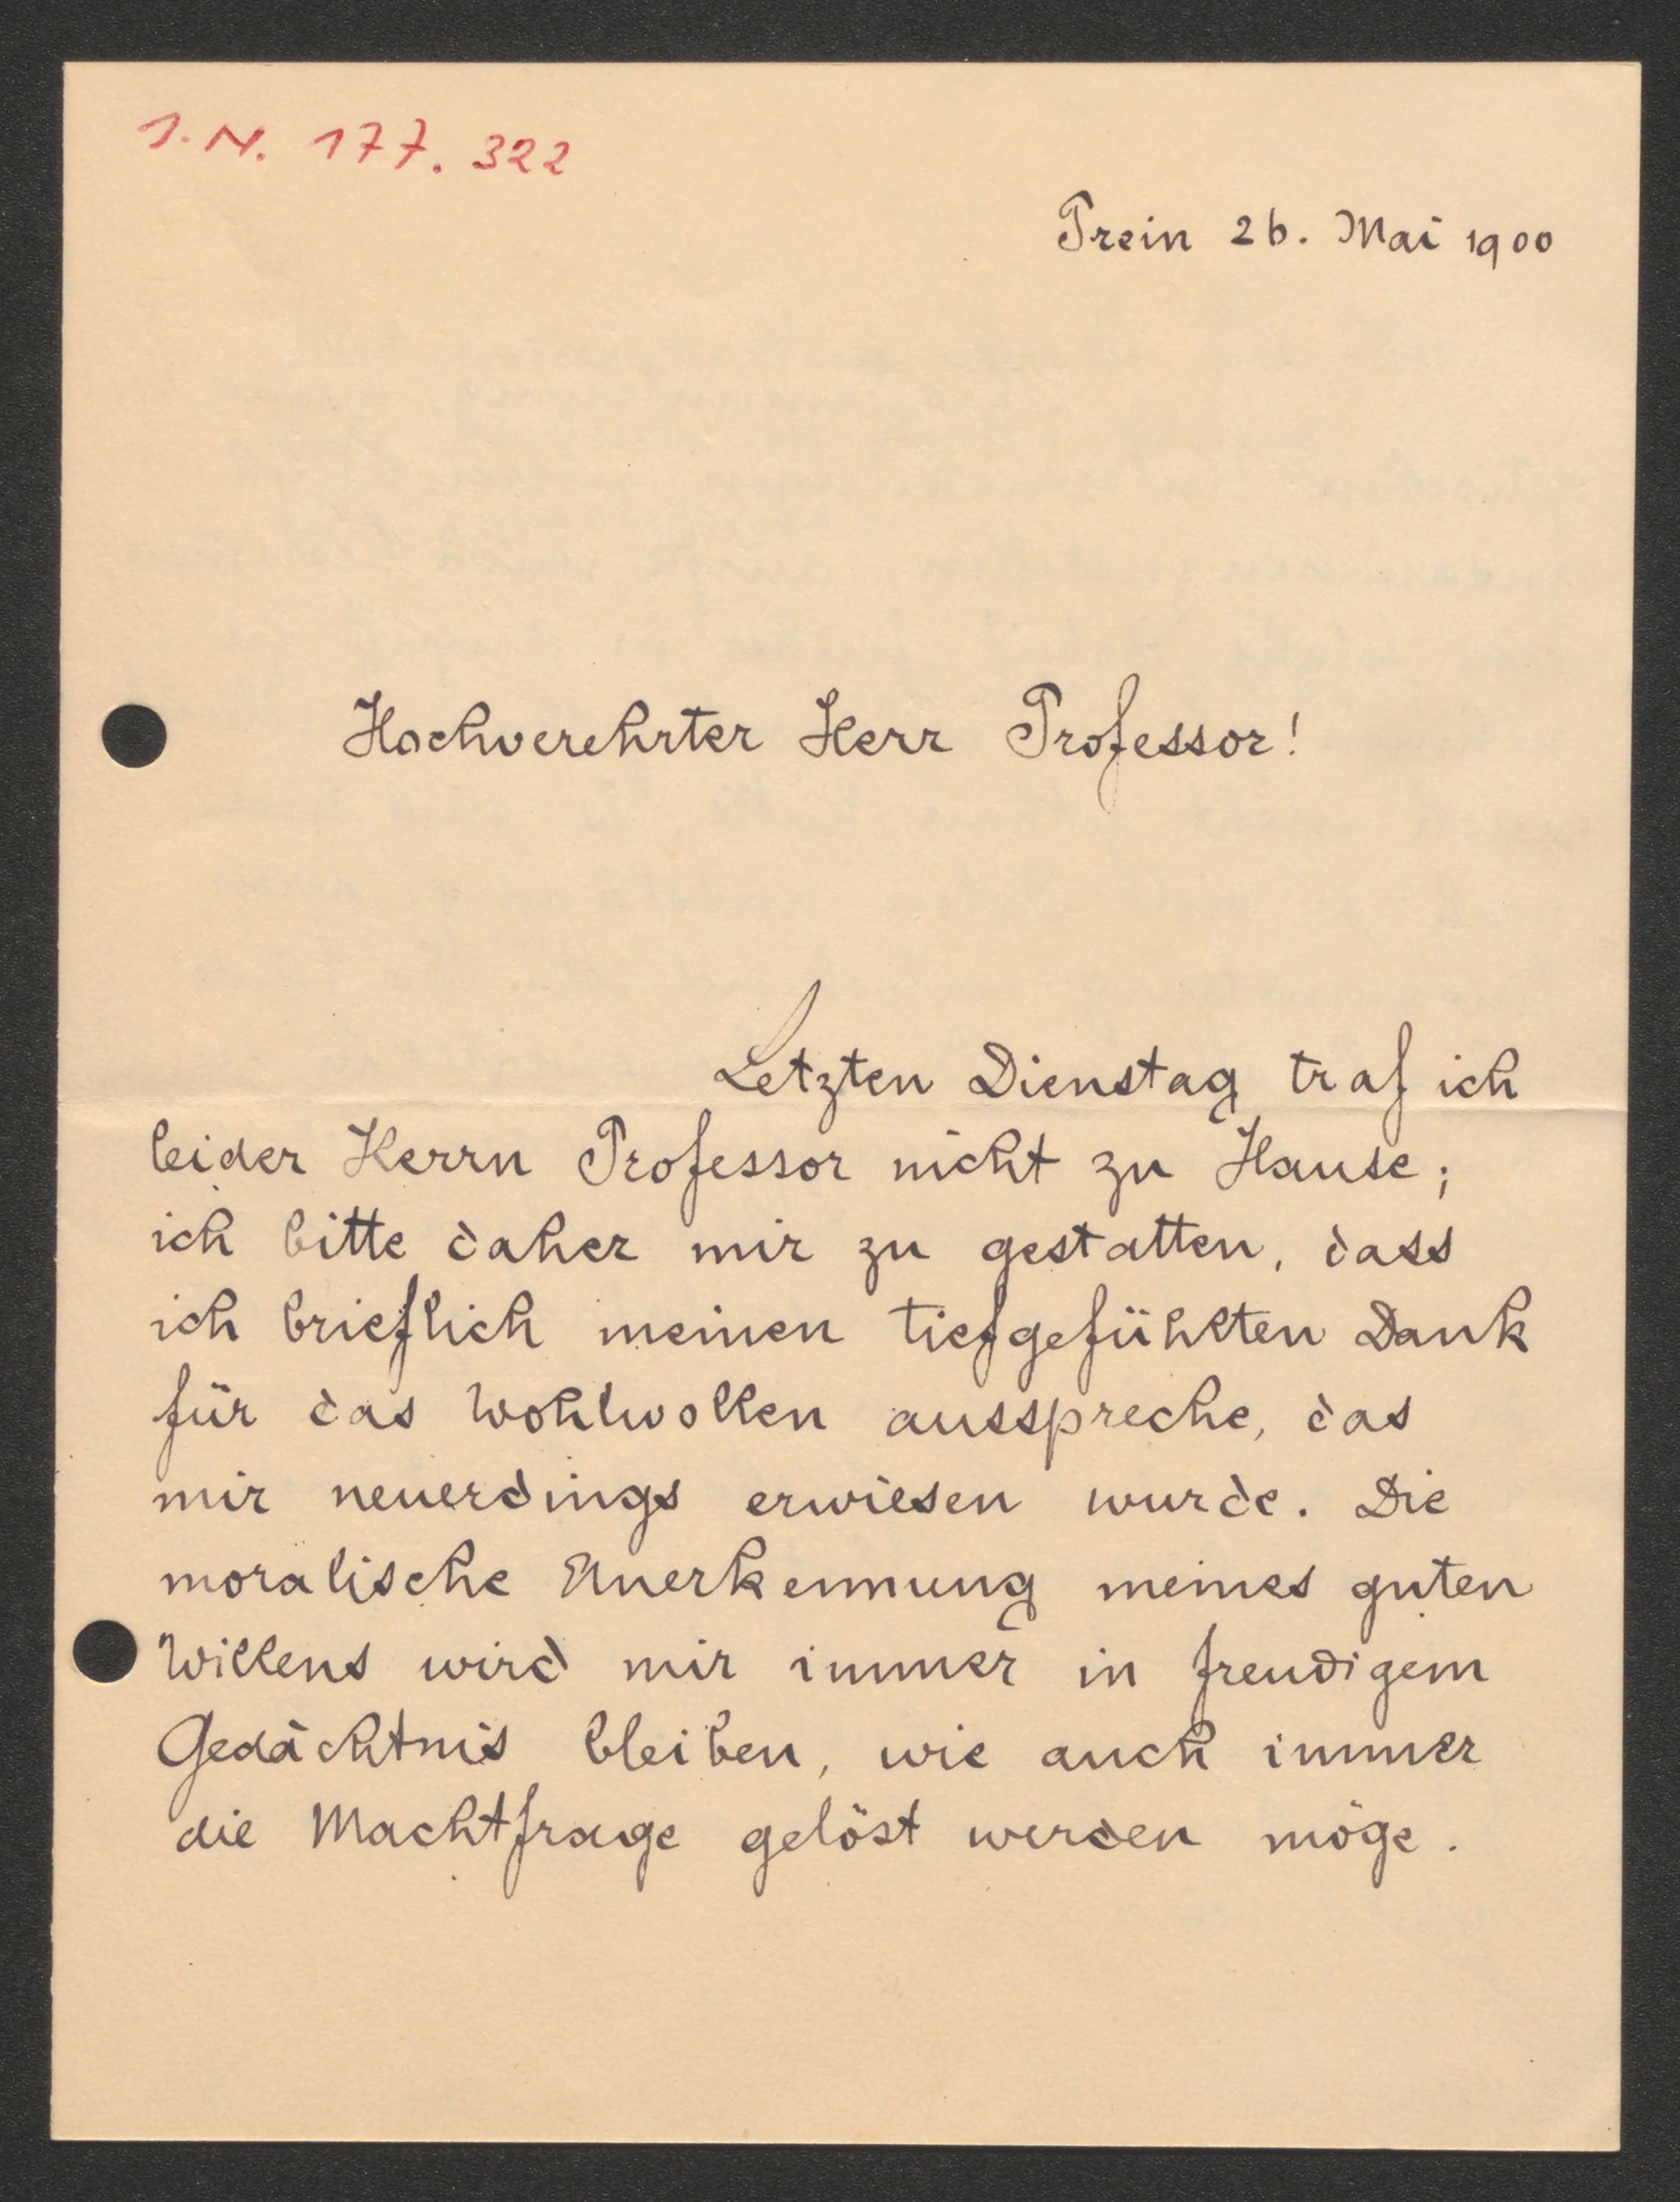 I.N. 177.322
Prein 26. Mai 1900
Hochverehrter Herr Professor!
Letzten Dienstag traf ich
leider Herrn Professor nicht zu Hause;
ich bitte daher mir zu gestatten, dass
ich brieflich meinen tiefgefühlten Dank
für das Wohlwollen ausspreche, das
mir neuerdings erwiesen wurde. Die
moralische Anerkennung meines guten
Willens wird mir immer in freudigem
Gedächtnis bleiben, wie auch immer
die Machtfrage gelöst werden möge.